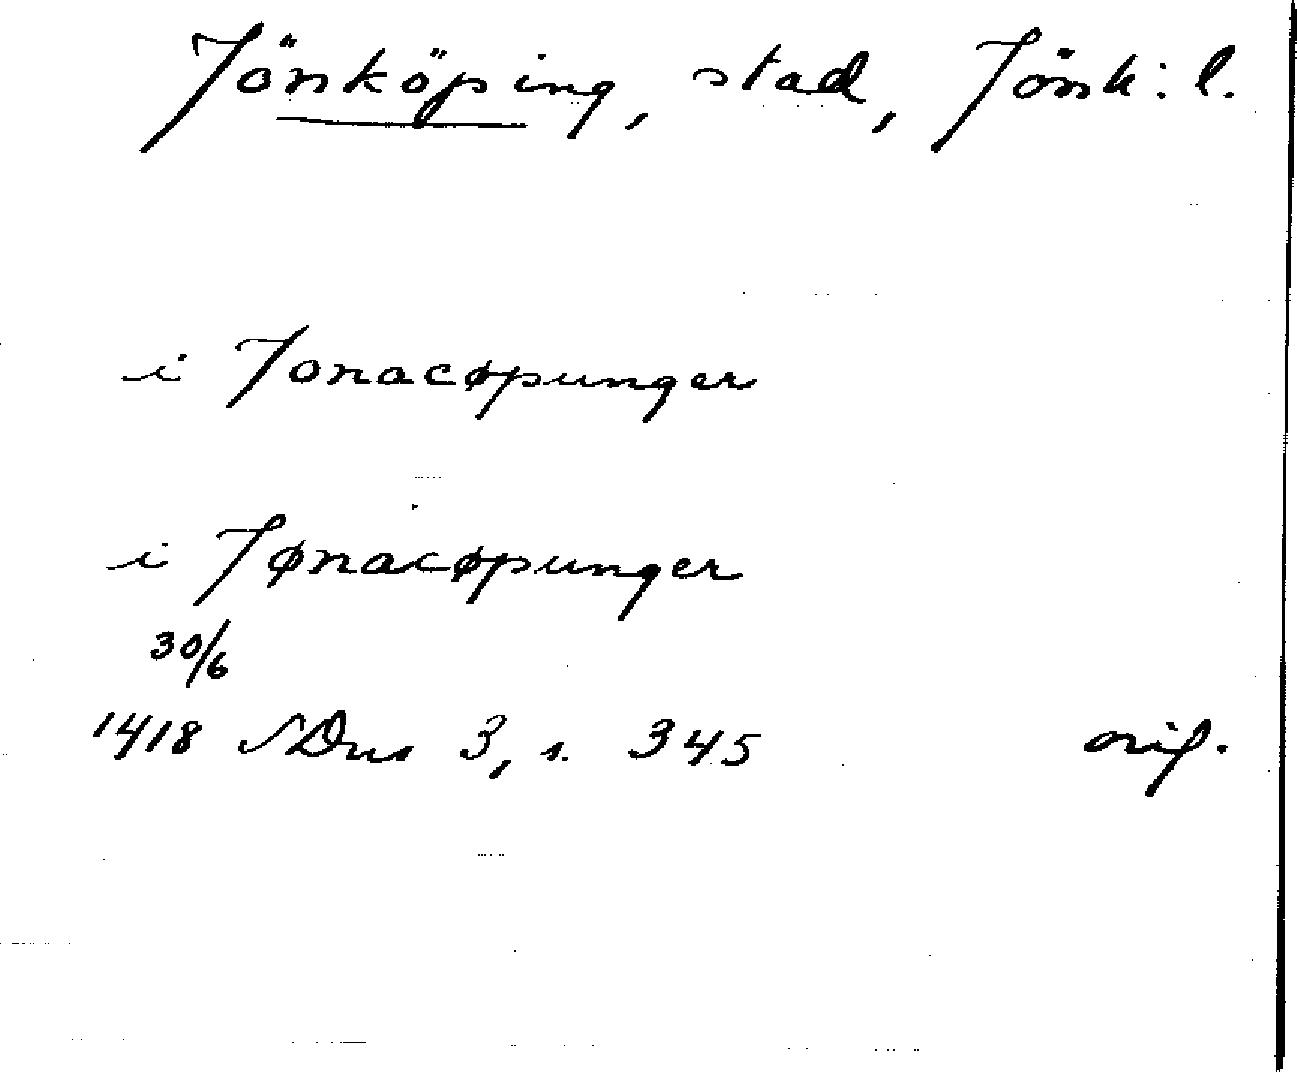 Jönköping, stad, Jönk: l.
i Jonacøpunger
i Jønacøpunger
30/6
1418 SDns 3, s. 345 orig.